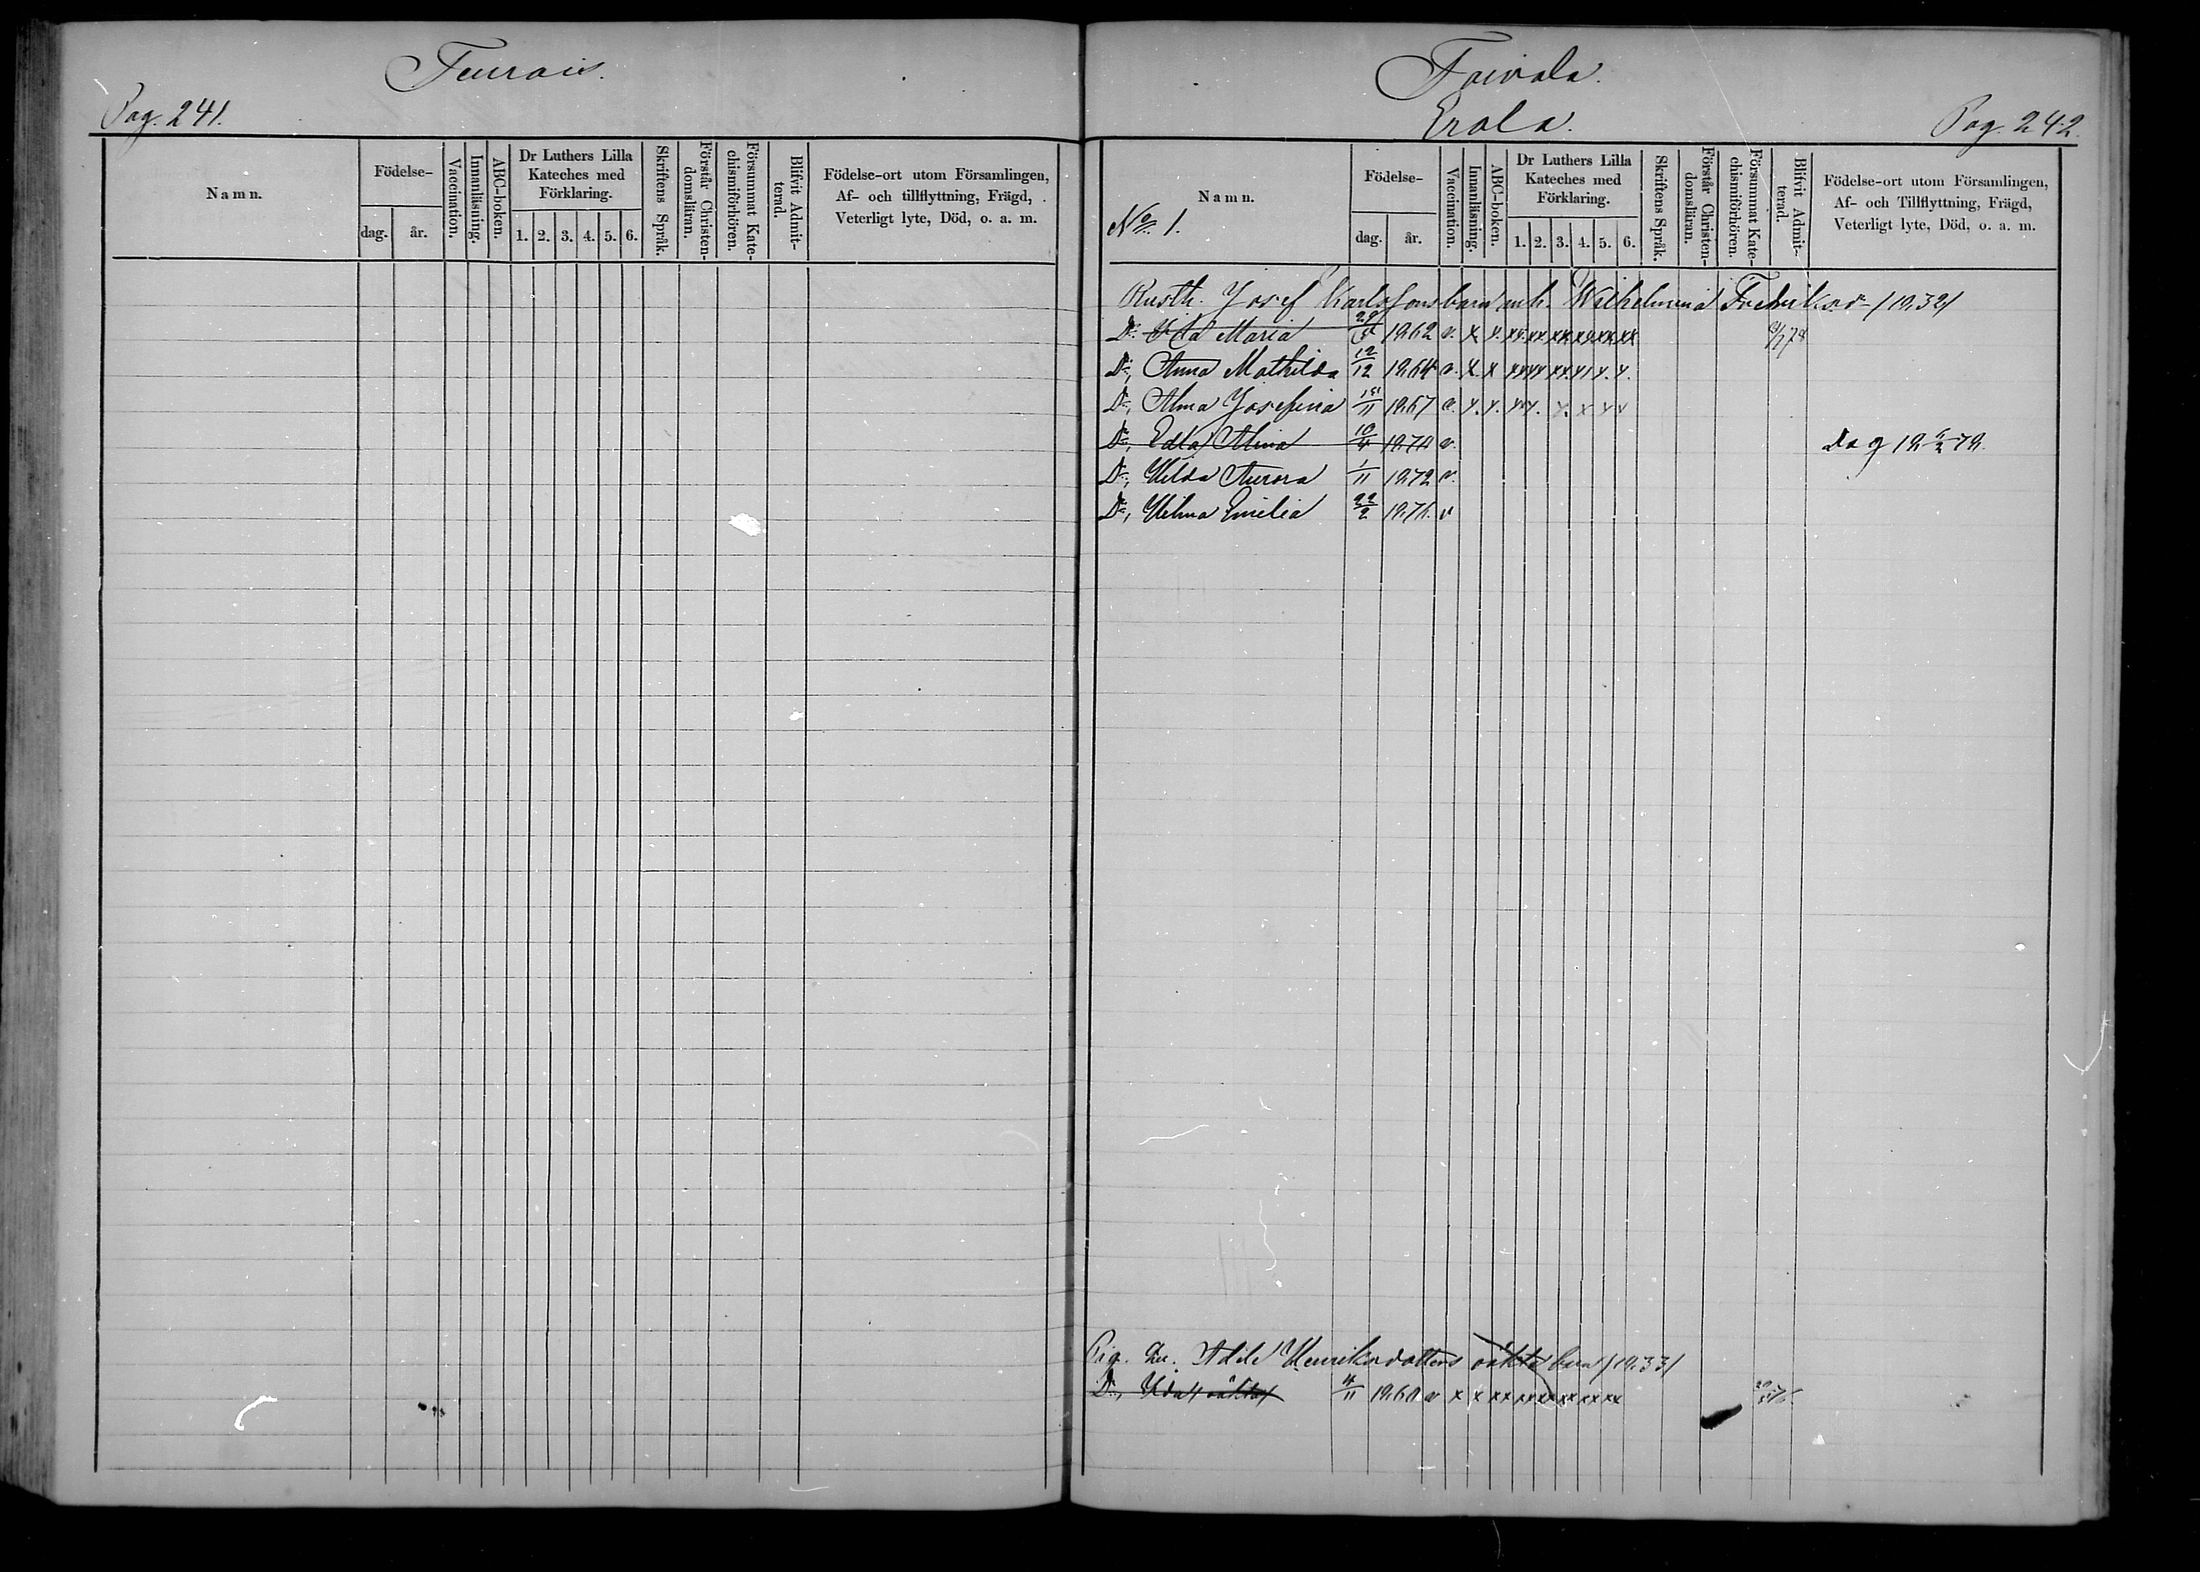 Teurois.
Pag. 241.
Namn.
Födelse-
dag.
år.
Vaccination.
Innanläsning.
ABC-boken.
Dr Luthers Lilla Kateches med Förklaring.
1. 2. 3. 4. 5. 6.
Skriftens Språk.
Förstår Christendomsläran.
Försummat Katechismiförhören.
Blifvit Admitterad.
Födelse-ort utom Församlingen,
Af- och tillflyttning, Frägd,
Veterligt lyte, Död, o. a. m.
Toivola.
Erola.
Pag. 242.
Namn.
No 1.
Födelse-
dag.
år.
Vaccination.
Innanläsning.
ABC-boken.
Dr Luthers Lilla Kateches med Förklaring.
1. 2. 3. 4. 5. 6.
Skriftens Språk.
Förstår Christendomsläran.
Försummat Katechismiförhören.
Blifvit Admitterad.
Födelse-ort utom Församlingen,
Af- och Tillflyttning, Frägd,
Veterligt lyte, Död, o. a. m.
Rusth. Josef Karlssons barn m. h. Wilhelmina Fredriksd. /1832/
Dr Maria 1862 v. x x. xx xx xx xx xx xx
Dr, Anna Mathilda 12/12 1864 v. x. x xx xx xx x x. x.
Dr, Alma Josefina 1867 v. x. x. xx x. x. x x x
Dr, Edla Alina 10/4 1870 v.
Dr, Hilda Aurora 1/11 1872 v.
Dr, Hilma Emilia 22/2 187 v
Pig. Adele Henriksdotters oäkta barn /1833/
Dr, Ida /oäkta/ 4/11 1860 v x x xx xx xx xx xx xx